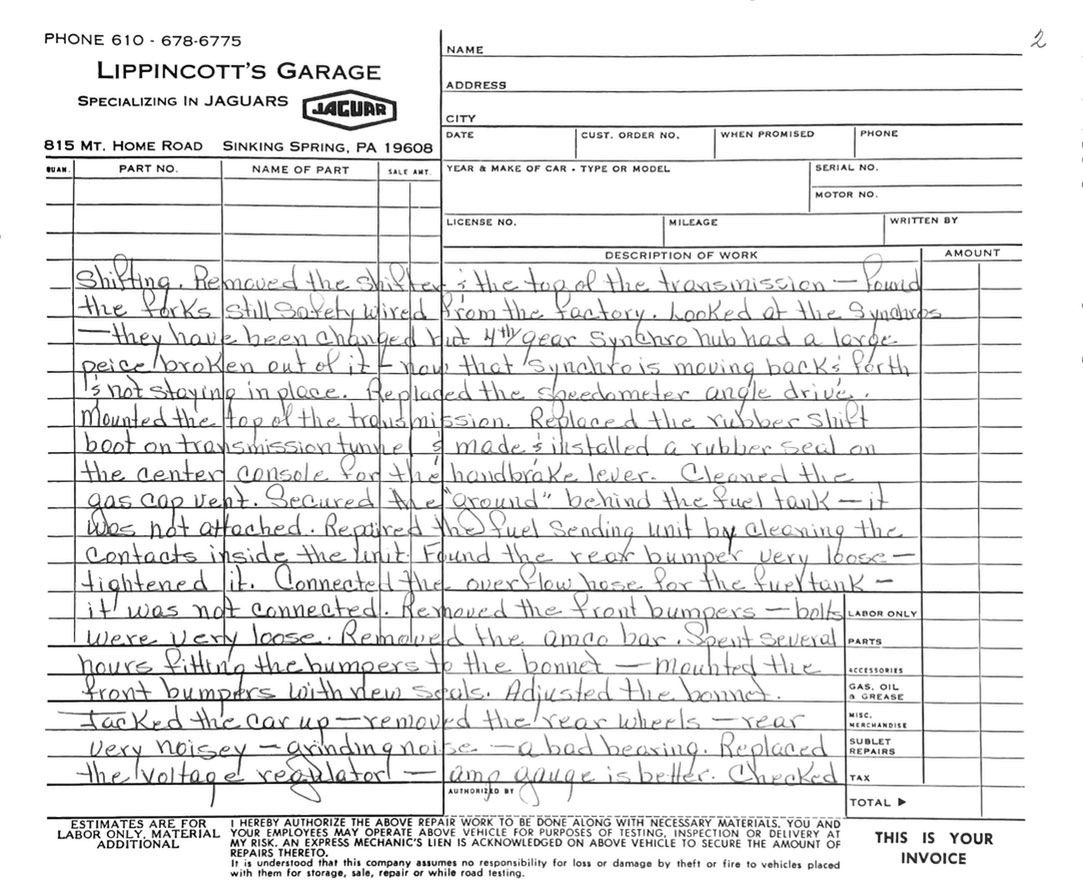 2
PHONE 610 - 678-6775
LIPPINCOTT'S GARAGE
SPECIALIZING IN JAGUARS
JAGUAR
815 MT. HOME ROAD SINKING SPRING, PA 19608
NAME
ADDRESS
CITY
DATE CUST. ORDER NO. WHEN PROMISED PHONE
QUAN. PART NO. NAME OF PART SALE AMT.
YEAR & MAKE OF CAR - TYPE OR MODEL SERIAL NO.
MOTOR NO.
LICENSE NO. MILEAGE WRITTEN BY
DESCRIPTION OF WORK AMOUNT
Shifting. Removed the shifter & the top of the transmission — found
the forks still safety wired from the factory. Looked at the synchros
— they have been changed but 4th gear synchro hub had a large
peice broken out of it — now that synchro is moving back & forth
& not staying in place. Replaced the speedometer angle drive.
Mounted the top of the transmission. Replaced the rubber shift
boot on transmission tunnel & made & installed a rubber seal on
the center console for the handbrake lever. Cleaned the
gas cap vent. Secured the "ground" behind the fuel tank — it
was not attached. Repaired the fuel sending unit by cleaning the
contacts inside the unit. Found the rear bumper very loose —
tightened it. Connected the overflow hose for the fuel tank —
it was not connected. Removed the front bumpers — bolts
were very loose. Removed the amco bar. Spent several
hours fitting the bumpers to the bonnet — mounted the
front bumpers with new seals. Adjusted the bonnet.
Jacked the car up — removed the rear wheels — rear
very noisey — grinding noise — a bad bearing. Replaced
the voltage regulator — amp gauge is better. Checked
LABOR ONLY
PARTS
ACCESSORIES
GAS, OIL
& GREASE
MISC.
MERCHANDISE
SUBLET
REPAIRS
TAX
TOTAL ▶
AUTHORIZED BY
ESTIMATES ARE FOR
LABOR ONLY, MATERIAL
ADDITIONAL
I HEREBY AUTHORIZE THE ABOVE REPAIR WORK TO BE DONE ALONG WITH NECESSARY MATERIALS. YOU AND
YOUR EMPLOYEES MAY OPERATE ABOVE VEHICLE FOR PURPOSES OF TESTING, INSPECTION OR DELIVERY AT
MY RISK. AN EXPRESS MECHANIC'S LIEN IS ACKNOWLEDGED ON ABOVE VEHICLE TO SECURE THE AMOUNT OF
REPAIRS THERETO.
It is understood that this company assumes no responsibility for loss or damage by theft or fire to vehicles placed
with them for storage, sale, repair or while road testing.
THIS IS YOUR
INVOICE